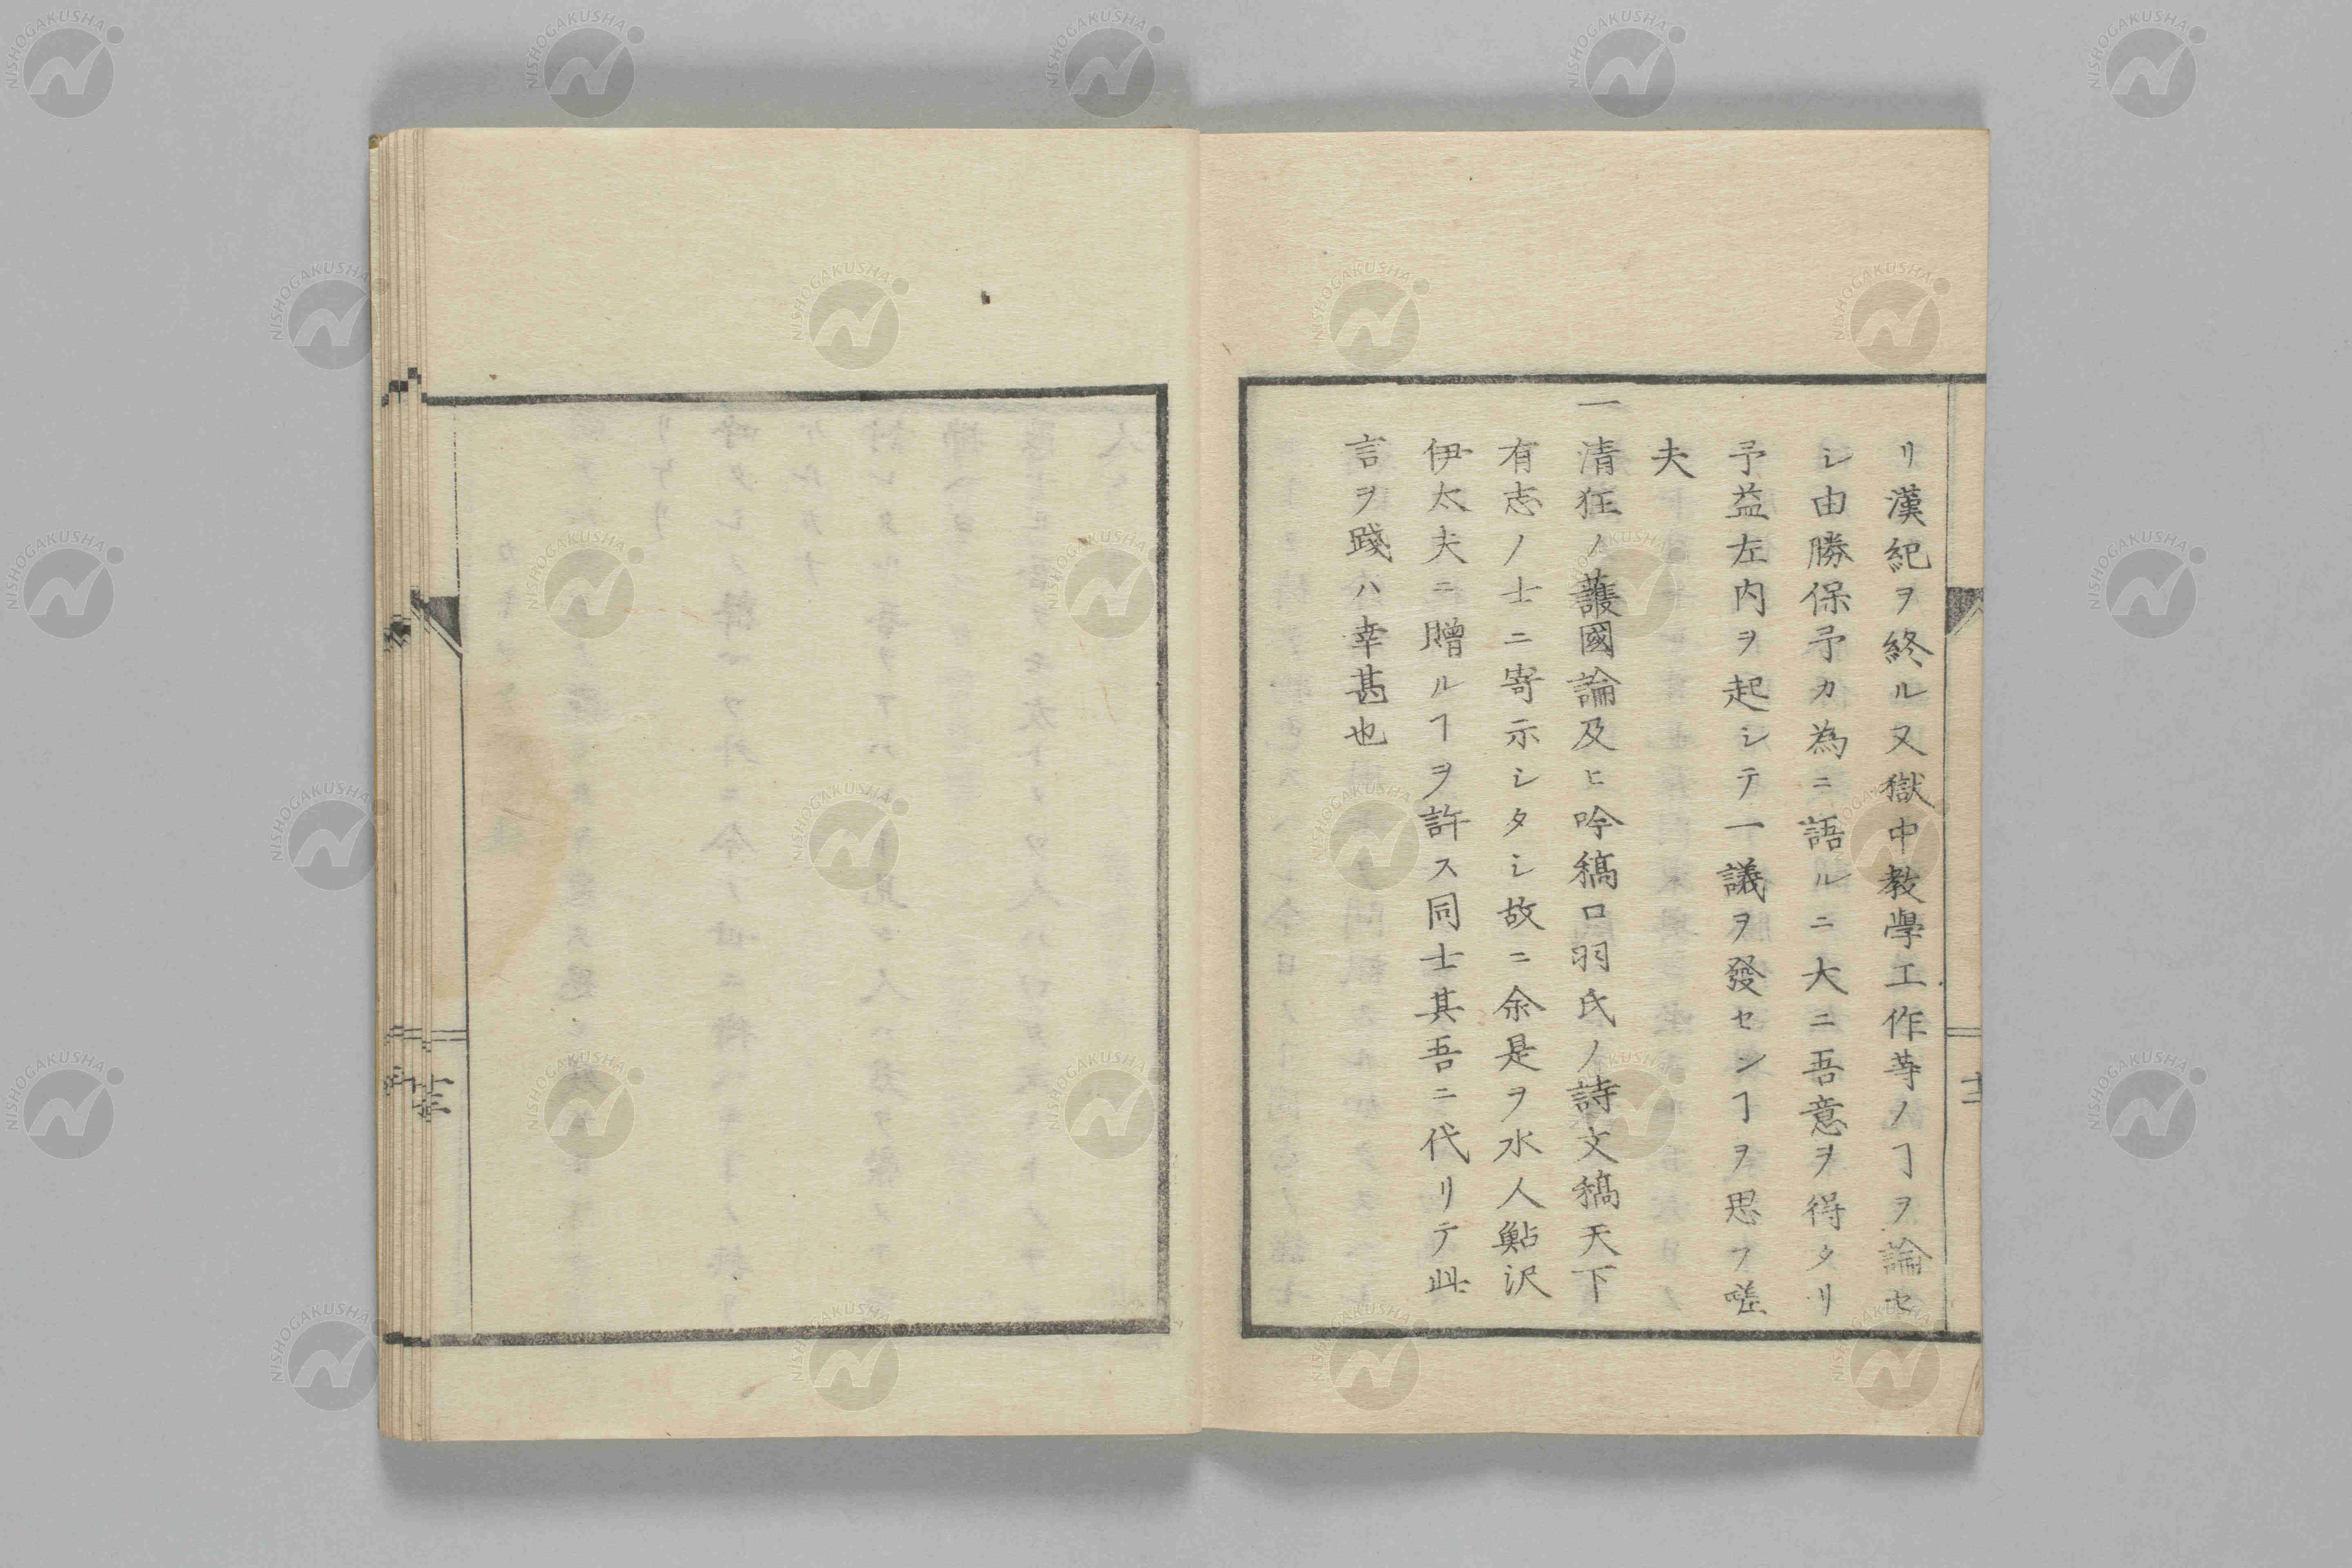 リ漢紀ヲ終ル又獄中教學工作等ノヿヲ論セ
シ由勝保予カ為ニ語ルニ大ニ吾意ヲ得タリ
予益左内ヲ起シテ一議ヲ發センヿヲ思フ嗟
夫
一清狂ノ護國論及ヒ吟稿口羽氏ノ詩文稿天下
有志ノ士ニ寄示シタシ故ニ余是ヲ水人鮎沢
伊太夫ニ贈ルヿヲ許ス同士其吾ニ代リテ此
言ヲ踐ハ幸甚也
十三
NISHOGAKUSHA